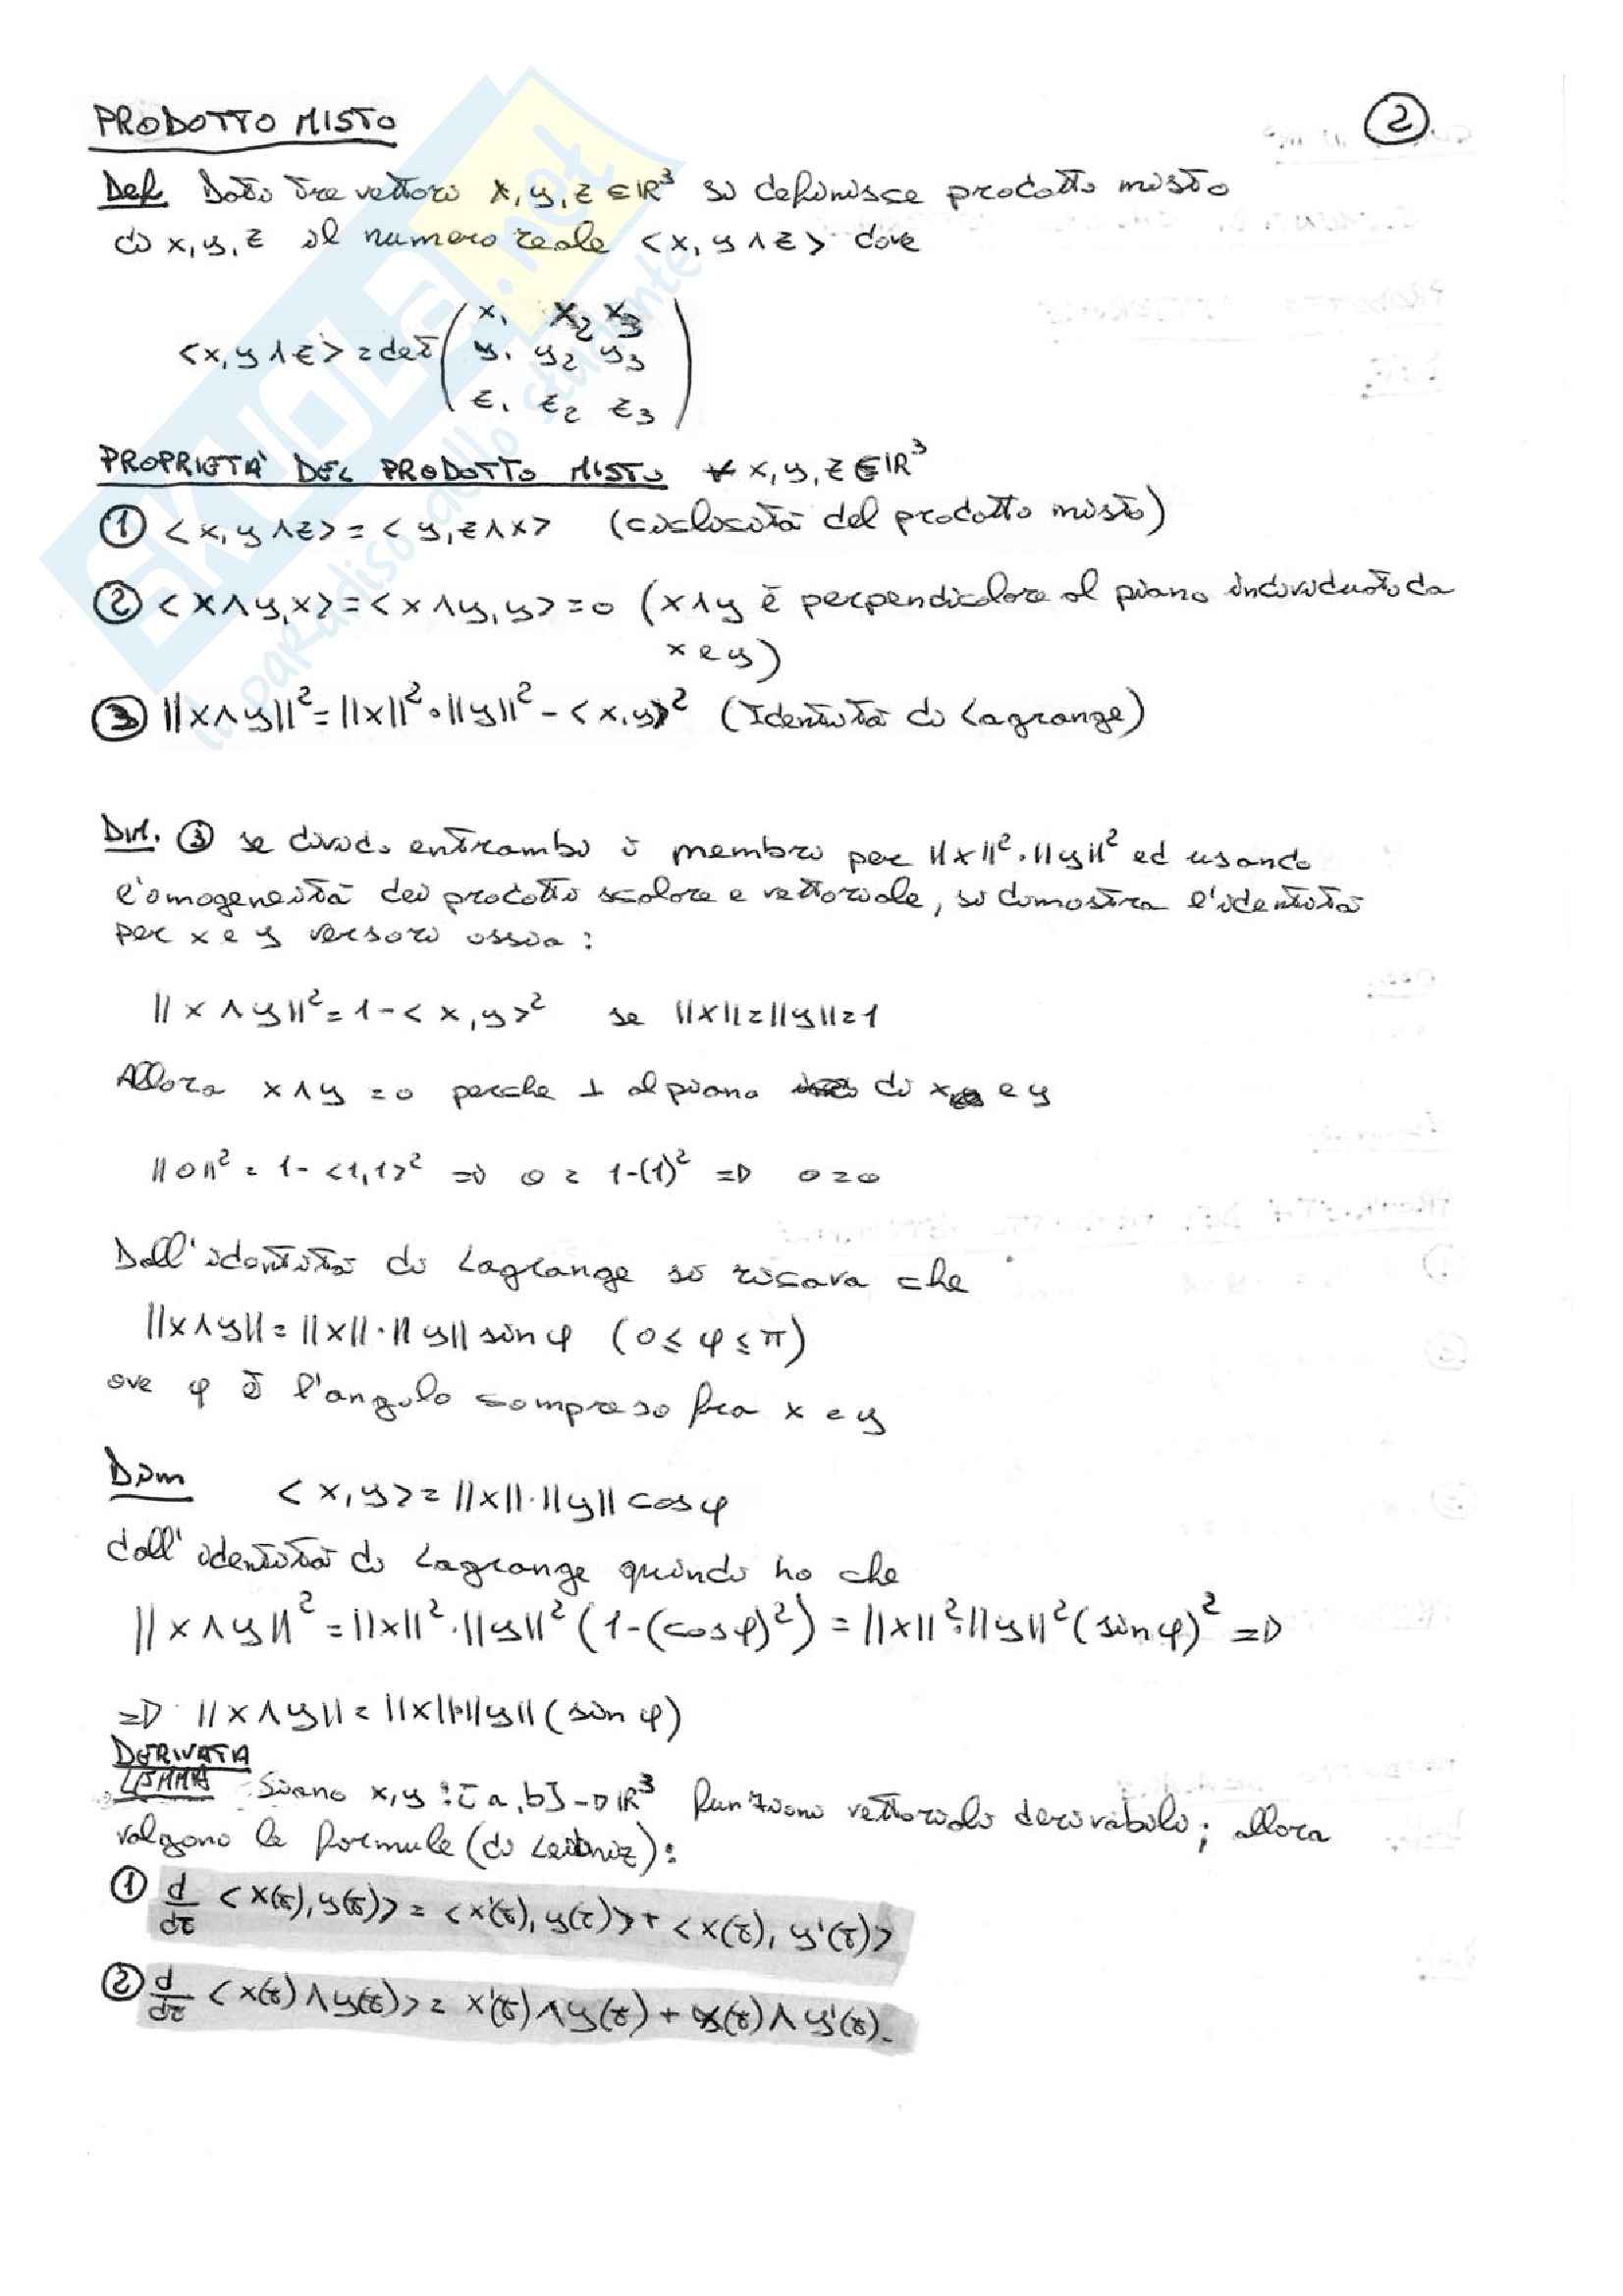 PRODOTTO MISTO
2
Def. Dati tre vettori x, y, z ∈ ℝ³ si definisce prodotto misto
di x, y, z il numero reale <x, y ∧ z> dove
<x, y ∧ z> = det ( x₁ x₂ x₃
y₁ y₂ y₃
z₁ z₂ z₃ )
PROPRIETA' DEL PRODOTTO MISTO ∀ x, y, z ∈ ℝ³
① <x, y ∧ z> = <y, z ∧ x> (ciclicità del prodotto misto)
② <x ∧ y, x> = <x ∧ y, y> = 0 (x ∧ y è perpendicolare al piano individuato da
x e y)
③ ||x ∧ y||² = ||x||² · ||y||² - <x, y>² (Identità di Lagrange)
Dim. ③ se divido entrambi i membri per ||x||² · ||y||² ed usando
l'omogeneità dei prodotti scalare e vettoriale, si dimostra l'identità
per x e y versori ossia :
||x ∧ y||² = 1 - <x, y>² se ||x|| = ||y|| = 1
Allora x ∧ y = 0 perche ⊥ al piano di x e y
||0||² = 1 - <1, 1>² => 0 = 1 - (1)² => 0 = 0
Dall'identità di Lagrange si ricava che
||x ∧ y|| = ||x|| · ||y|| sin φ (0 ≤ φ ≤ π)
ove φ è l'angolo compreso fra x e y
Dim <x, y> = ||x|| · ||y|| cos φ
dall'identità di Lagrange quindi ho che
||x ∧ y||² = ||x||² · ||y||² (1 - (cos φ)²) = ||x||² · ||y||² (sin φ)² =>
=> ||x ∧ y|| = ||x|| · ||y|| (sin φ)
DERIVATA
LEMMA Siano x, y : [a, b] → ℝ³ funzioni vettoriali derivabili; allora
valgono le formule (di Leibniz) :
① d/dt <x(t), y(t)> = <x'(t), y(t)> + <x(t), y'(t)>
② d/dt <x(t) ∧ y(t)> = x'(t) ∧ y(t) + x(t) ∧ y'(t).
SKUOLA.net
il paradiso dello studente